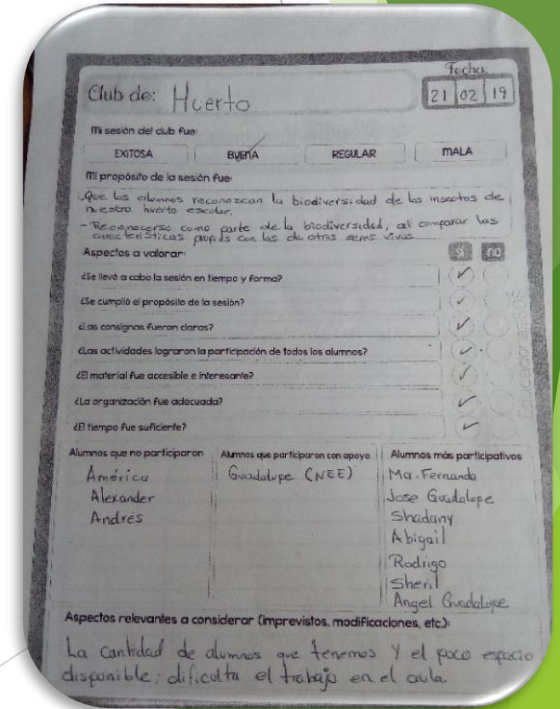 Fecha:
Club de: Huerto
21 02 19
Mi sesión del club fue:
EXITOSA BUENA REGULAR MALA
Mi propósito de la sesión fue:
-Que los alumnos reconozcan la biodiversidad de los insectos de
nuestro huerto escolar.
- Reconocerse como parte de la biodiversidad, al comparar las
características propias con las de otros seres vivos
Aspectos a valorar: si no
¿Se llevó a cabo la sesión en tiempo y forma?
¿Se cumplió el propósito de la sesión?
¿Las consignas fueron claras?
¿Las actividades lograron la participación de todos los alumnos?
¿El material fue accesible e interesante?
¿La organización fue adecuada?
¿El tiempo fue suficiente?
Alumnos que no participaron
América
Alexander
Andrés
Alumnos que participaron con apoyo
Guadalupe (NEE)
Alumnos más participativos
Ma. Fernanda
Jose Guadalupe
Shadany
Abigail
Rodrigo
Sheril
Angel Guadalupe
Aspectos relevantes a considerar (imprevistos, modificaciones, etc.):
La cantidad de alumnos que tenemos y el poco espacio
disponible; dificulta el trabajo en el aula